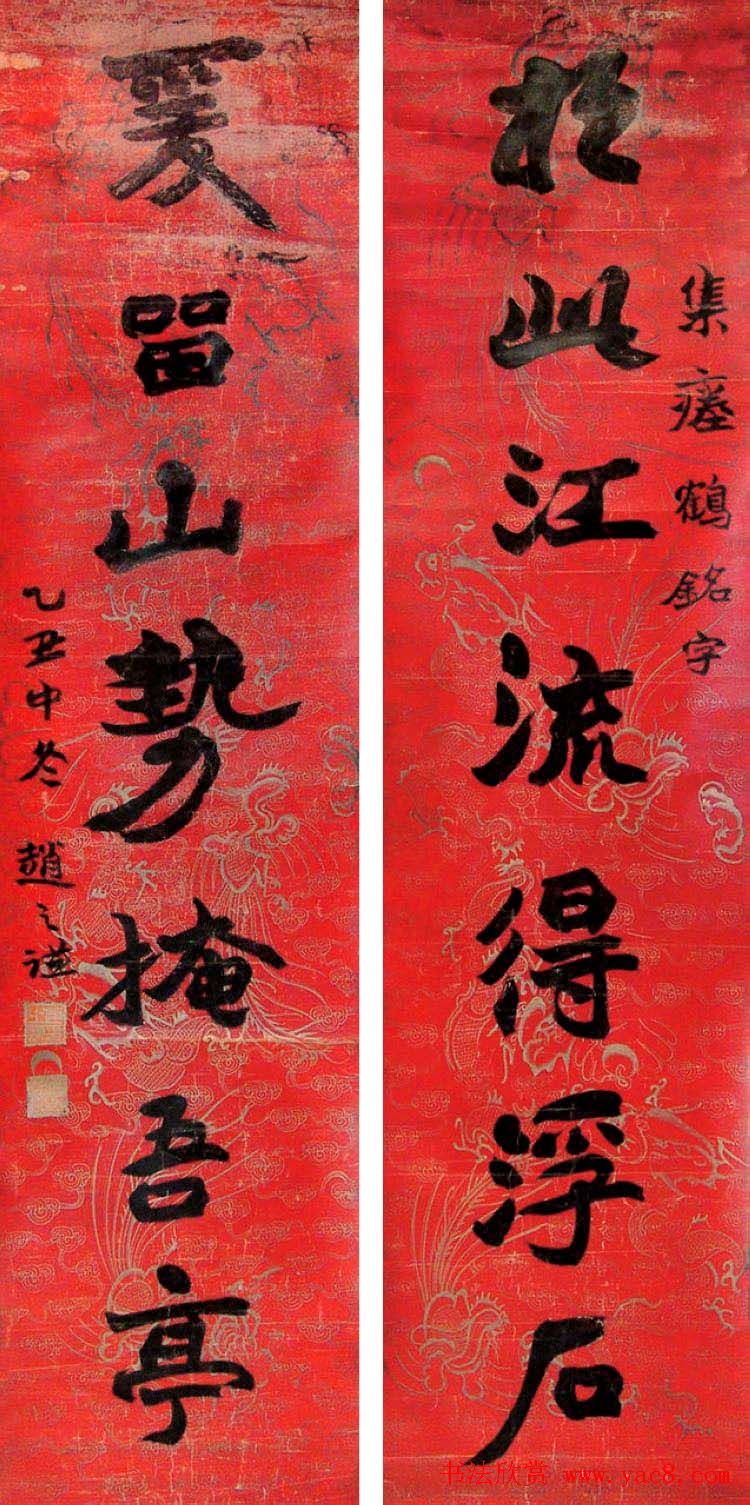 於此江流得浮石
集瘞鶴銘字
爰留山勢掩吾亭
乙丑中冬 趙之謙
书法欣赏 www.yac8.com